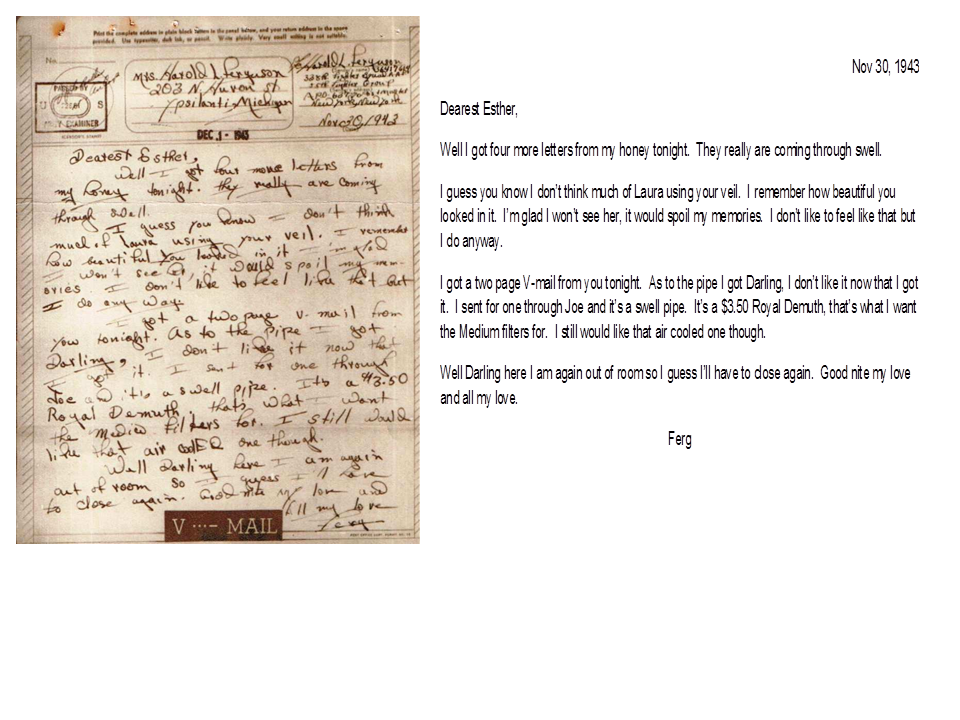 Print the complete address in plain block letters in the panel below, and your return address in the space
provided. Use typewriter, dark ink, or pencil. Write plainly. Very small writing is not suitable.
No.
Mrs. Harold L. Ferguson
203 N Huron St
Ypsilanti Michigan
Harold L. Ferguson
New York, New York
Nov 30, 1943
PASSED BY
U S
ARMY EXAMINER
DEC 1 - 1943
Dearest Esther,
Well I got four more letters from
my honey tonight. they really are coming
through swell.
I guess you know I don't think
much of Laura using your veil. I remember
how beautiful you looked in it. I'm glad
I won't see her, it would spoil my mem-
ories I don't like to feel like that but
I do any way.
I got a two page v-mail from
you tonight. As to the pipe I got
Darling, I don't like it now that
I got it. I sent for one through
Joe and it's a swell pipe. Its a $3.50
Royal Demuth, thats what I want
the Medico filters for. I still would
like that air coolED one though.
Well Darling here I am again
out of room so I guess I'll have
to close again. Good nite my love and
all my love
Ferg
V ···– MAIL
Nov 30, 1943
Dearest Esther,
Well I got four more letters from my honey tonight. They really are coming through swell.
I guess you know I don't think much of Laura using your veil. I remember how beautiful you
looked in it. I'm glad I won't see her, it would spoil my memories. I don't like to feel like that but
I do anyway.
I got a two page V-mail from you tonight. As to the pipe I got Darling, I don't like it now that I got
it. I sent for one through Joe and it's a swell pipe. It's a $3.50 Royal Demuth, that's what I want
the Medium filters for. I still would like that air cooled one though.
Well Darling here I am again out of room so I guess I'll have to close again. Good nite my love
and all my love.
Ferg